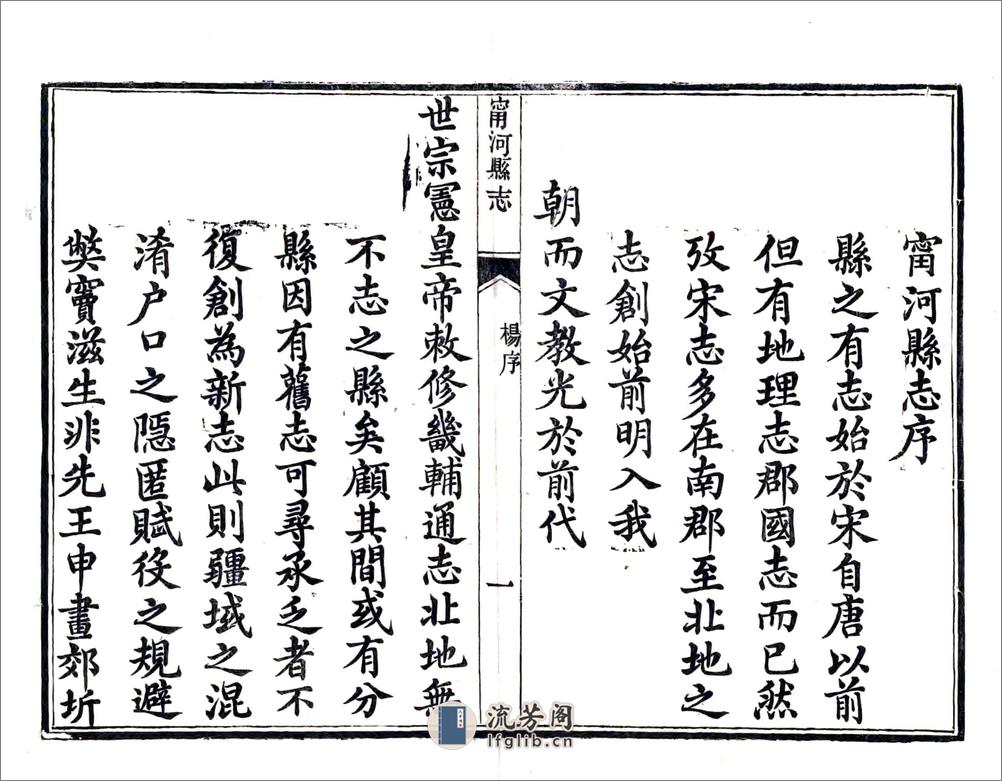 甯河縣志序
縣之有志始於宋自唐以前
但有地理志郡國志而已然
攷宋志多在南郡至北地之
志創始前明入我
朝而文教光於前代
甯河縣志
楊序
一
世宗憲皇帝敕修畿輔通志北地無
不志之縣矣顧其間或有分
縣因有舊志可尋承乏者不
復創為新志此則疆域之混
淆户口之隱匿賦役之規避
獘竇滋生非先王申畫郊圻
流芳阁
lfglib.cn